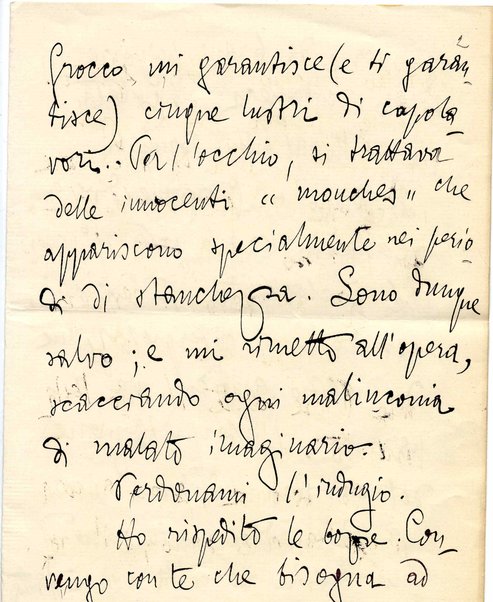 Grocco mi garantisce (e ti garan-
tisce) cinque lustri di capola-
vori. Per l'occhio, si trattava
delle innocenti “mouches„ che
appariscono specialmente nei perio
di di stanchezza. Sono dunque
salvo; e mi rimetto all'opera,
scacciando ogni malinconia
di malato imaginario.
Perdonami l'indugio.
Ho rispedito le bozze. Con-
vengo con te che bisogna ad